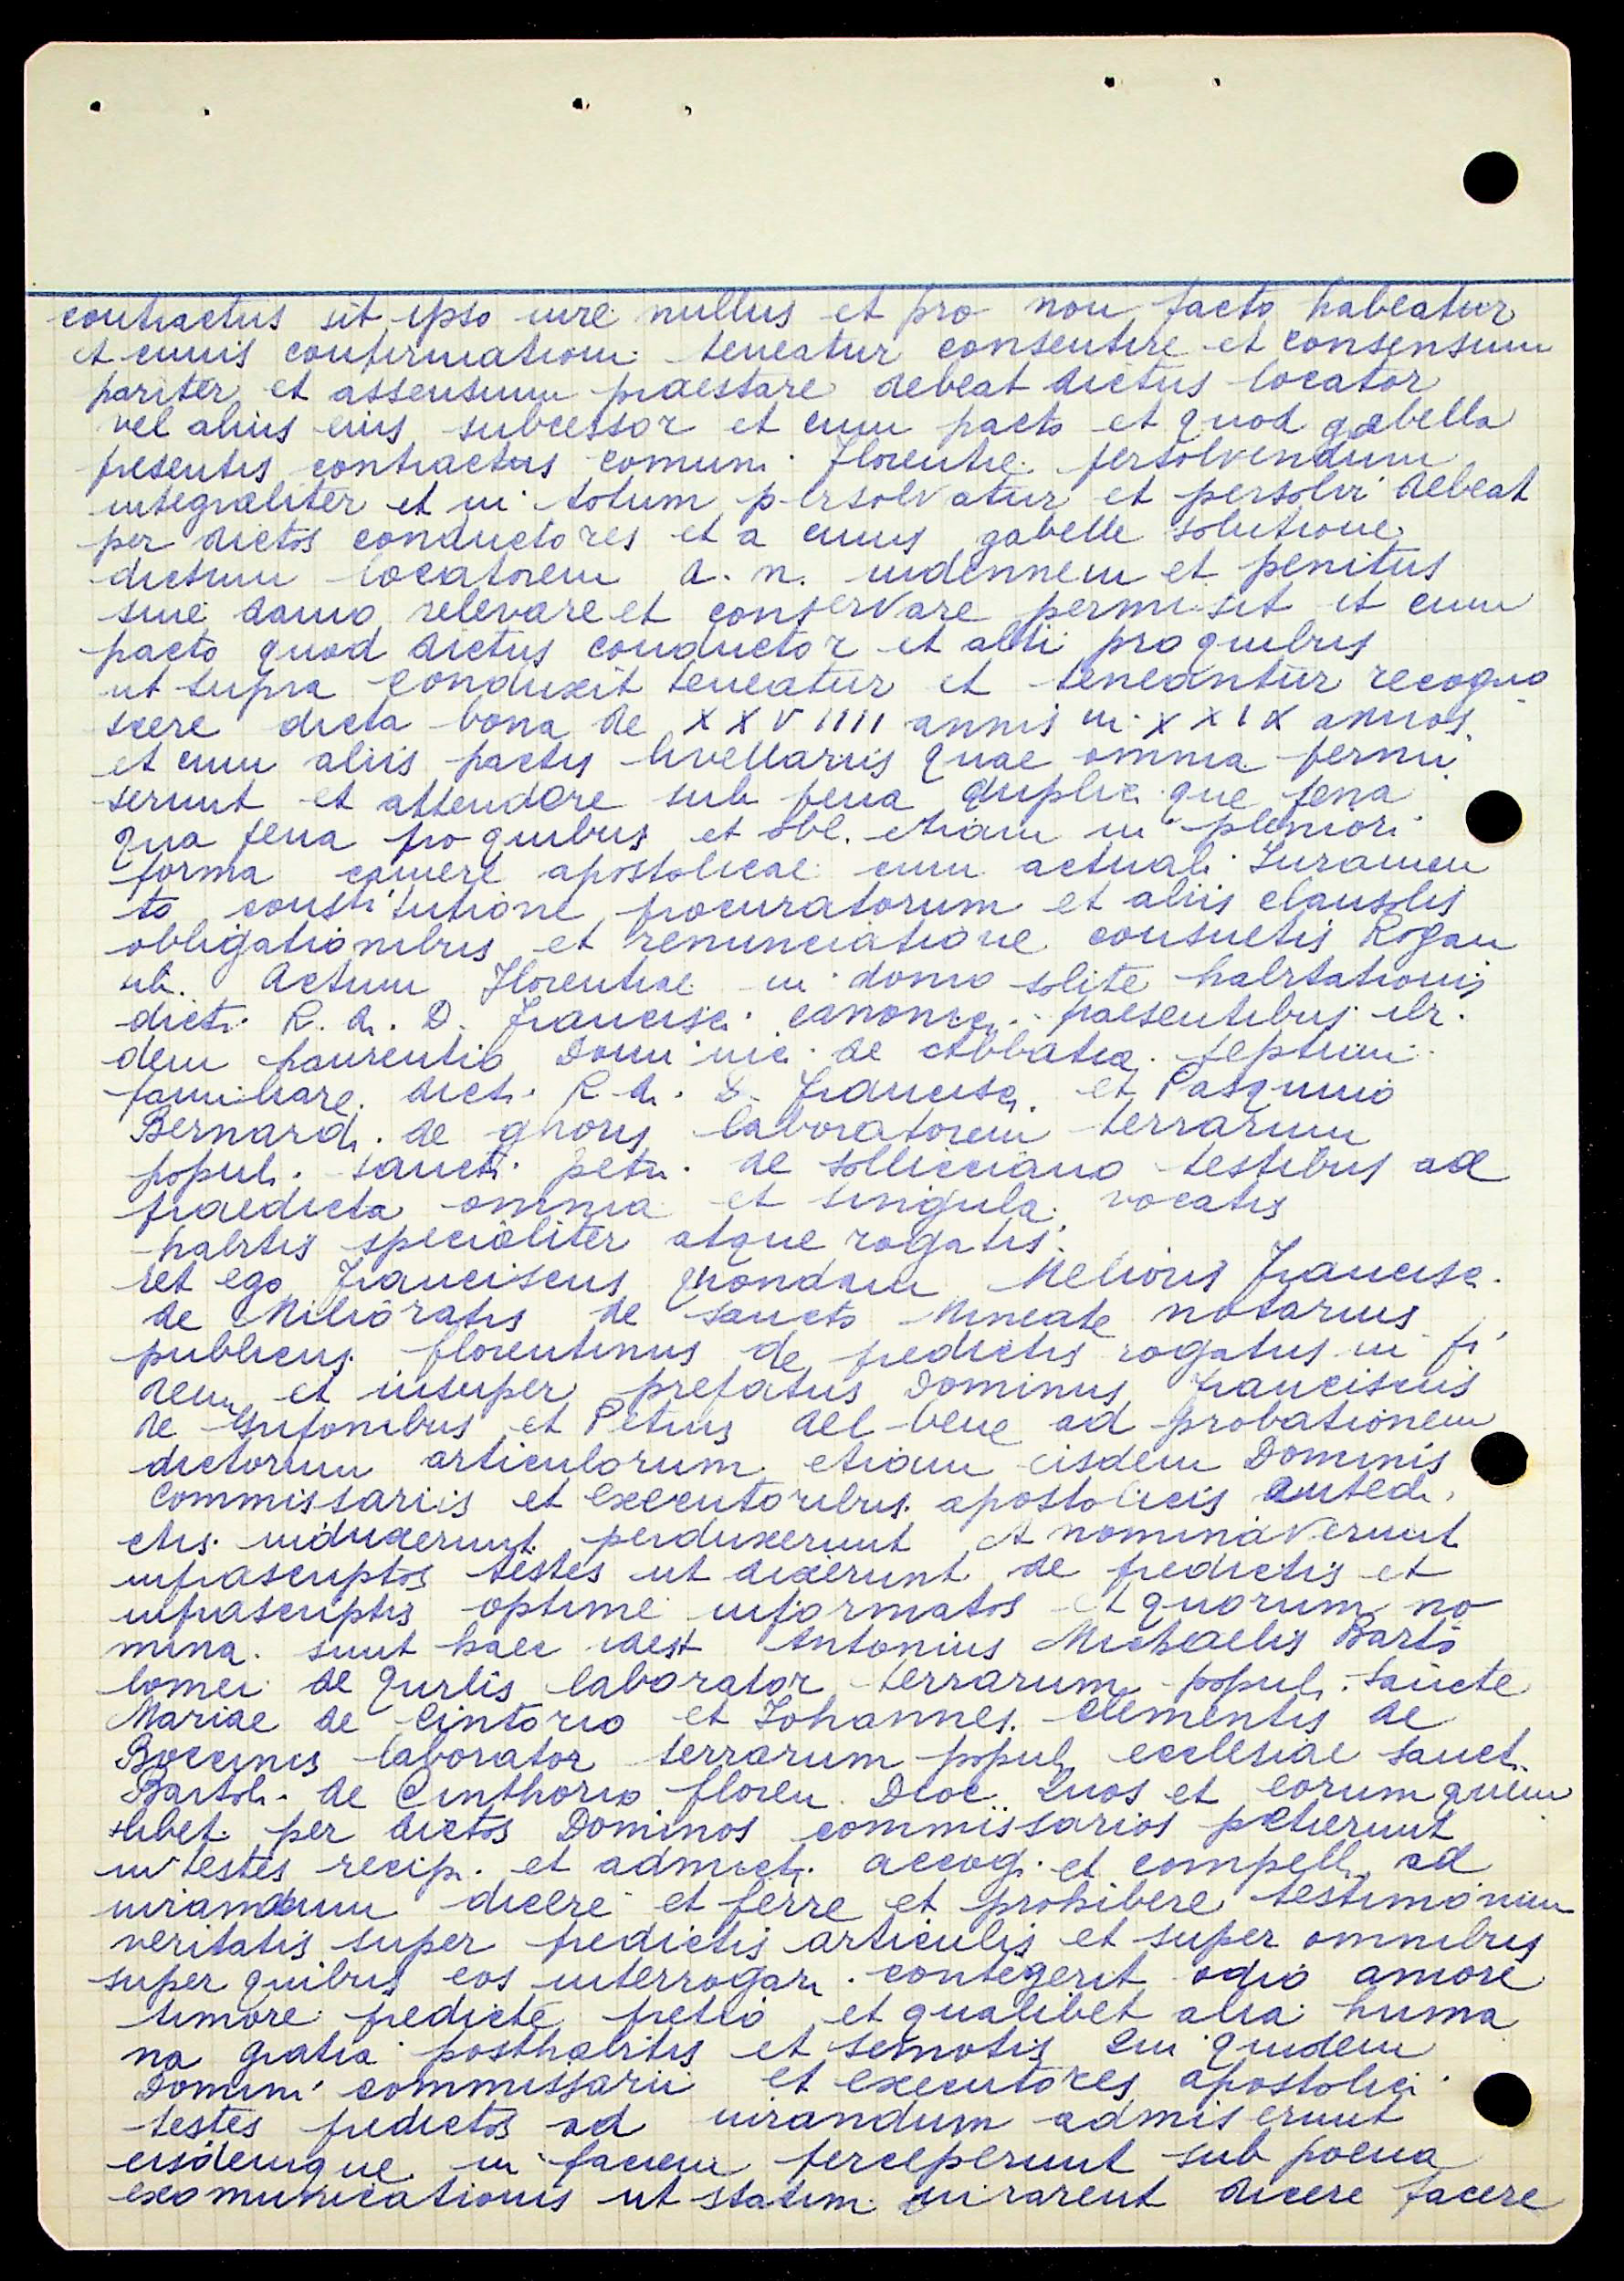 contractus sit ipso iure nullus et pro non facto habeatur
et cuuis confirmationi teneatur consentire et consensum
pariter et assensum praestare debeat dictus locator
vel alius eius subcessor et cum pacto et quod gabella
presentis contractus comuni Florentie persolvendum
integraliter et in totum persolvatur et persolvi debeat
per dictos conductores et a cuius gabelle solutione
dictum locatorem d. n. indennem et penitus
sine damno relevare et conservare permisit et cum
pacto quod dictus conductor et alii pro quibus
ut supra conduxit teneatur et teneantur recogno
scere dicta bona de XXVIIII annis in XXIX annos
et cum aliis pactis livellariis quae omnia permi
serunt et attendere sub pena dupli que pena
qua pena pro quibus et obl. etiam in pleniori
forma camere apostolicae cum actuali Iuramen
to constitutione procuratorum et aliis clausolis
obligationibus et renunciatione consuetis Rogan
sib. Actum Florentiae in domo solite habitationis
dicti R. d. D. Francisci canonici praesentibus ibi
dem Laurentio Dominici de Abbatia septimi
familiare dicti R. d. D. Francisci et Pasquino
Bernardi de ghoris laboratorem terrarum
populi sancti petri de sollicciano testibus ad
praedicta omnia et singula vocatis
habitis specialiter atque rogatis.
et ego Franciscus quondam Melioris Francisci
de Milioratis de sancto Mineate notarius
publicus florentinus de predictis rogatus in fi
dem et insuper prefatus Dominus Franciscus
de Grifonibus et Petrus del bene ad probationem
dictorum articulorum etiam eisdem Dominis
Commissariis et executoribus apostolicis antedi
ctis induxerunt perduxerunt et nominaverunt
infrascriptos testes ut dixerunt de predictis et
infrascriptis optime informatos et quorum no
mina sunt haec idest Antonius Michaelis Barto
lomei de Gurlis laborator terrarum populi Sancte
Mariae de Cintorio et Iohannes Clementis de
Boccinis laborator terrarum populi ecclesiae sancti
Bartoli de Cinthorio floren. Dioc. Quos et eorum quem
libet per dictos Dominos commissarios petierunt
in testes recip. et admicti accogi et compelli ad
iurandum dicere et ferre et prohibere testimonium
veritatis super predictis articulis et super omnibus
super quibus eos interrogari contegerit odio amore
timore predicte pretio et qualibet alia huma
na gratia posthabitis et semotis Qui quidem
Domini commissarii et executores apostolici
testes predictos ad iurandum admiserunt
eisdemque in faciem perceperunt sub poena
excomunicationis ut statim iurarent dicere facere